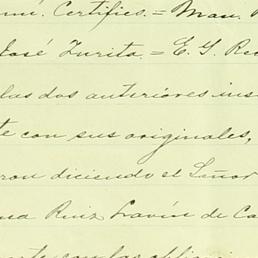 mí. Certifico. = Man.
José Zurita. = E. G. Re
las dos anteriores ins
te con sus originales,
ron diciendo el Señor
na Ruiz Lavín de Ca